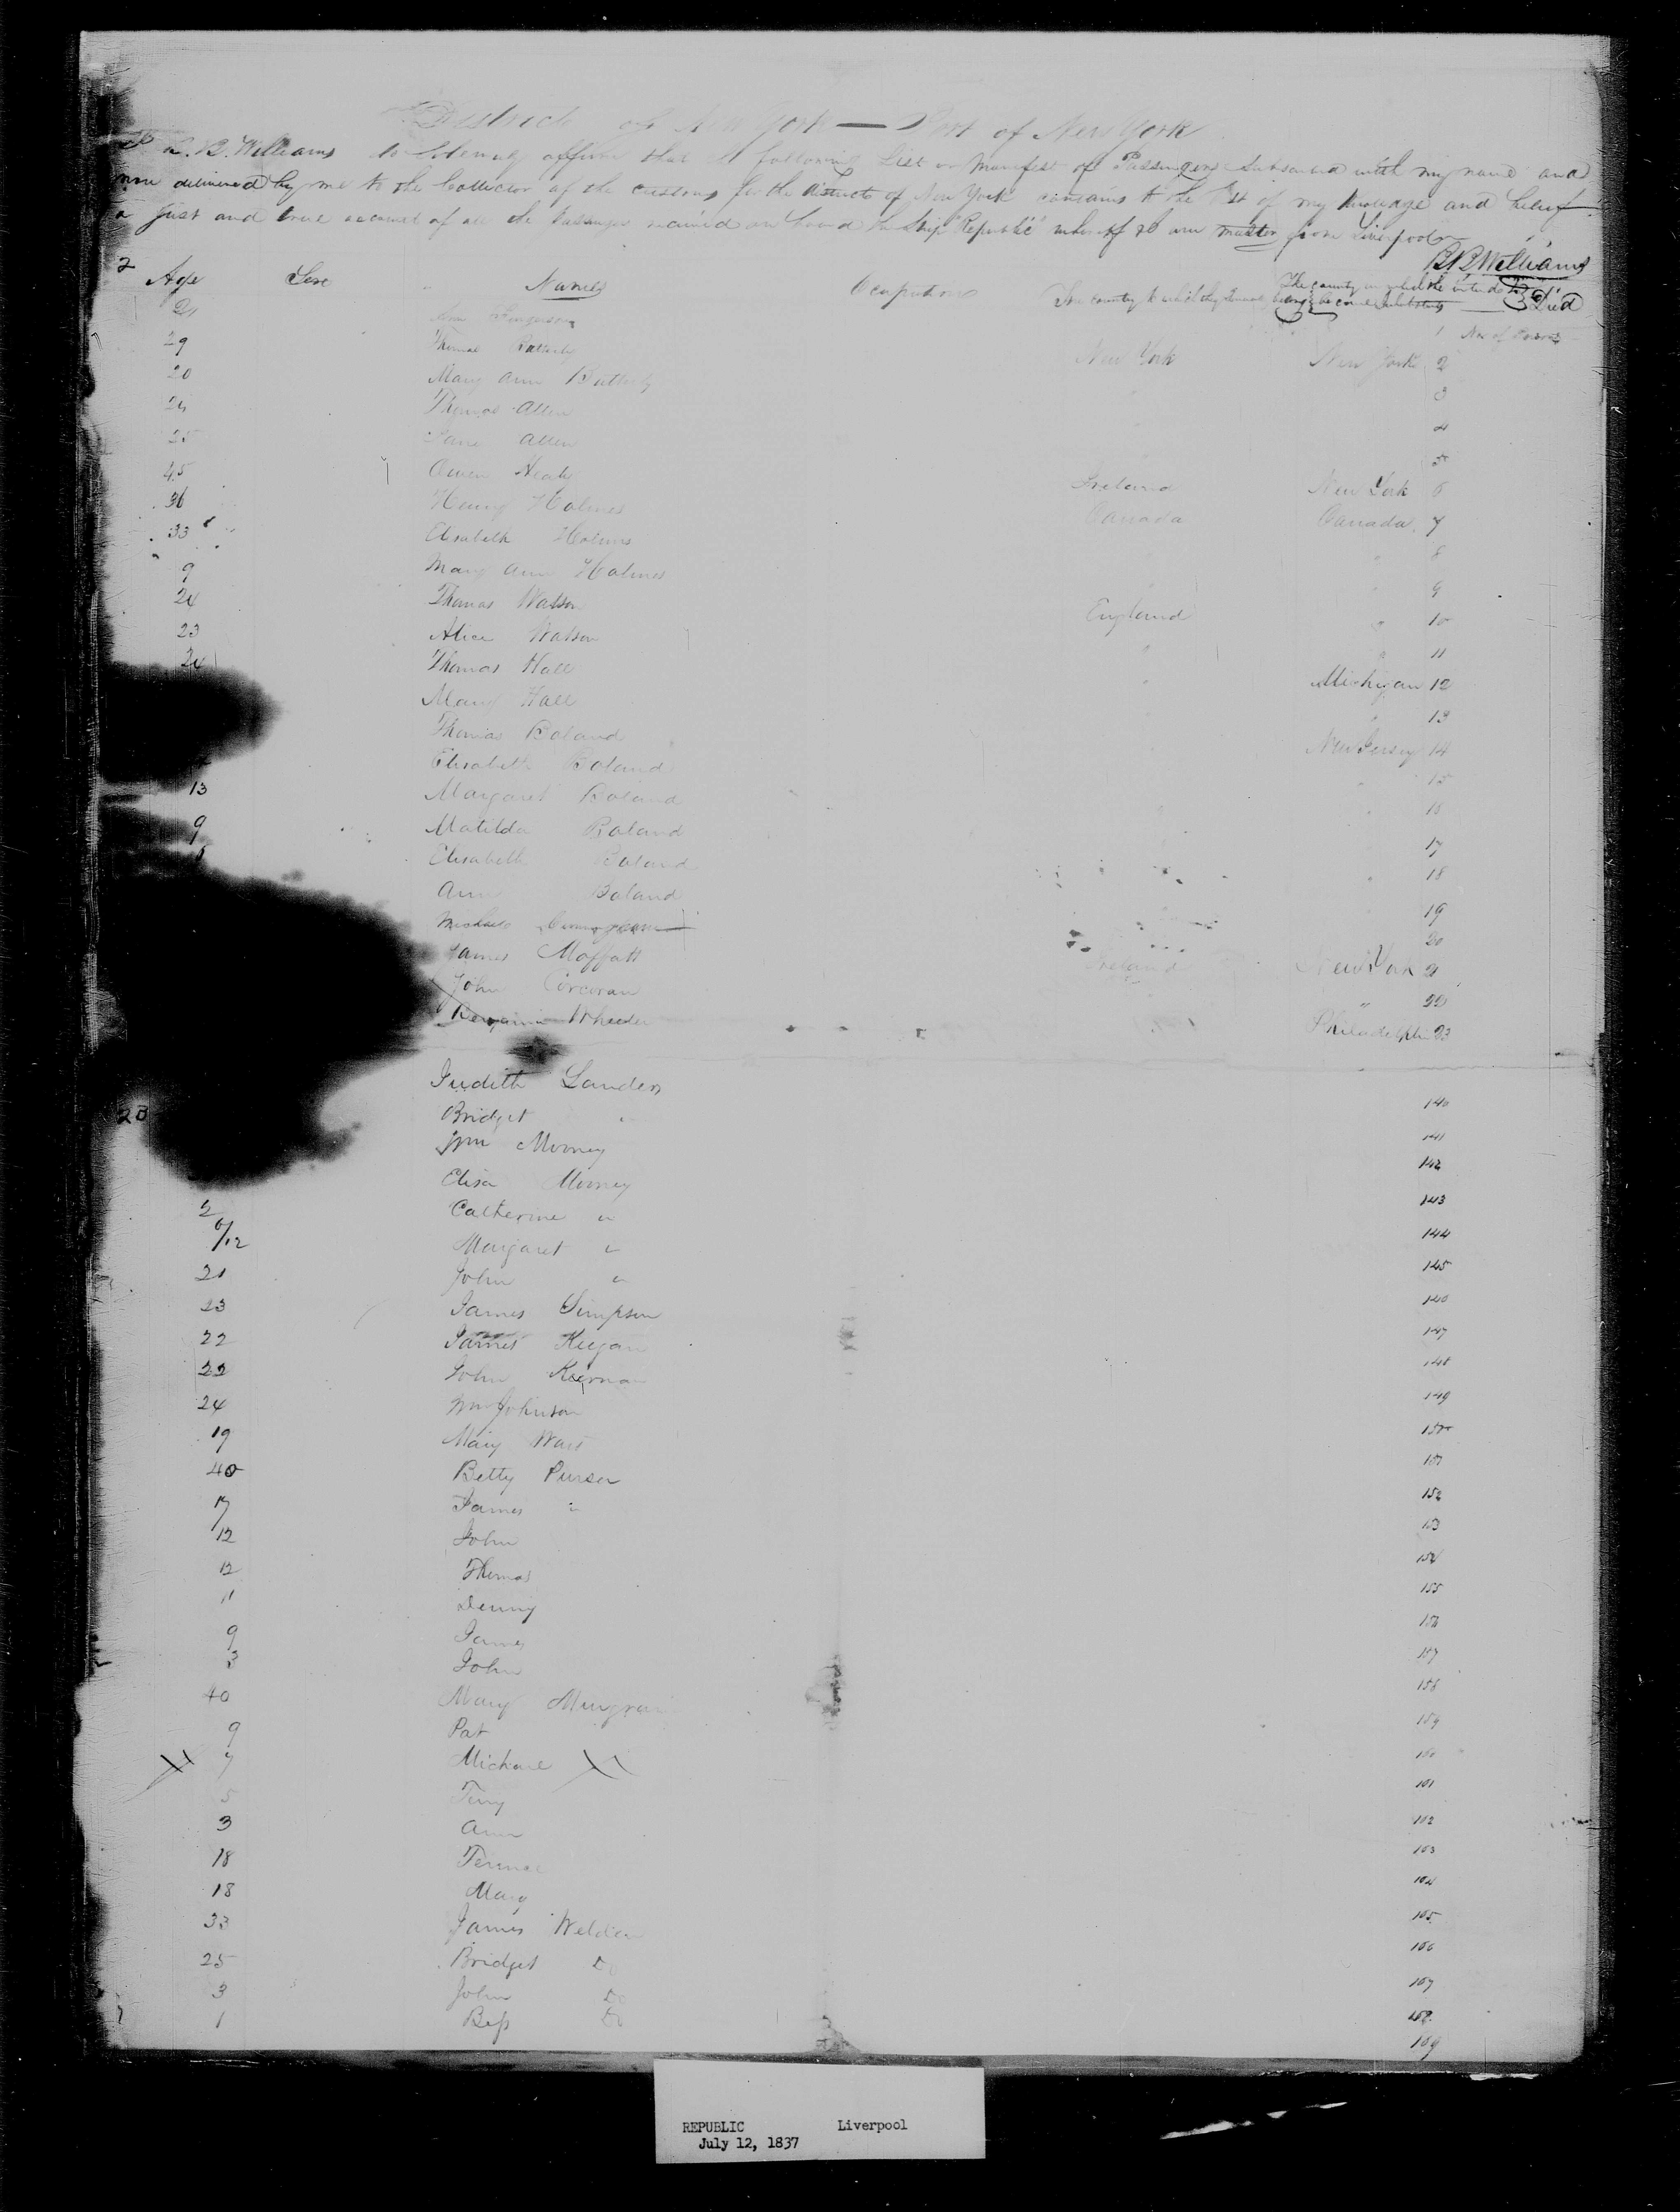 District of New York — Port of New York
B. Williams do solemnly affirm that the following List or Manifest of Passengers subscribed with my name and
now delivered by me to the Collector of the Customs for the District of New York contains to the best of my knowledge and belief
a just and true account of all the Passengers received on board the Ship "Republic" whereof I am master from Liverpool
Williams
Age Sex Names Occupations The country to which they belong The country in which they intend to become inhabitants Died
No of Persons
21 Ferguson 1
29 Thomas New York New York 2
20 Mary Ann 3
Thomas Allen 4
25 Jane Allen 5
45 Owen Healy Ireland New York 6
36 Henry Holmes Canada Canada 7
33 Elisabeth Holmes " 8
9 Mary Ann Holmes " 9
24 Thomas Watson England " 10
23 Alice Watson " " 11
24 Thomas Hall " Michigan 12
Mary Hall " 13
Thomas Boland New Jersey 14
Elisabeth Boland 15
13 Margaret Boland 16
9 Matilda Boland 17
Elisabeth Boland 18
Ann Boland 19
Michael 20
James Moffatt Ireland New York 21
John Corcoran " 22
Benjamin Wheeler Philadelphia 23
Judith Landers
28 Bridget " 140
Wm Mooney 141
Elisa Mooney 142
2 Catherine " 143
6/12 Margaret " 144
21 John " 145
23 James Simpson 146
22 James Keegan 147
22 John Kiernan 148
24 Wm Johnson 149
19 Mary 150
40 Betty Purser 151
17 James " 152
12 John 153
12 Thomas 154
11 Denny 155
9 James 156
3 John 157
40 Mary 158
9 Pat 159
7 Michael X 160
5 Terry 161
3 Ann 162
18 163
18 Mary 164
33 James Weldon 165
25 Bridget Do 166
3 John Do 167
1 Bess Do 168
169
REPUBLIC Liverpool
July 12, 1837